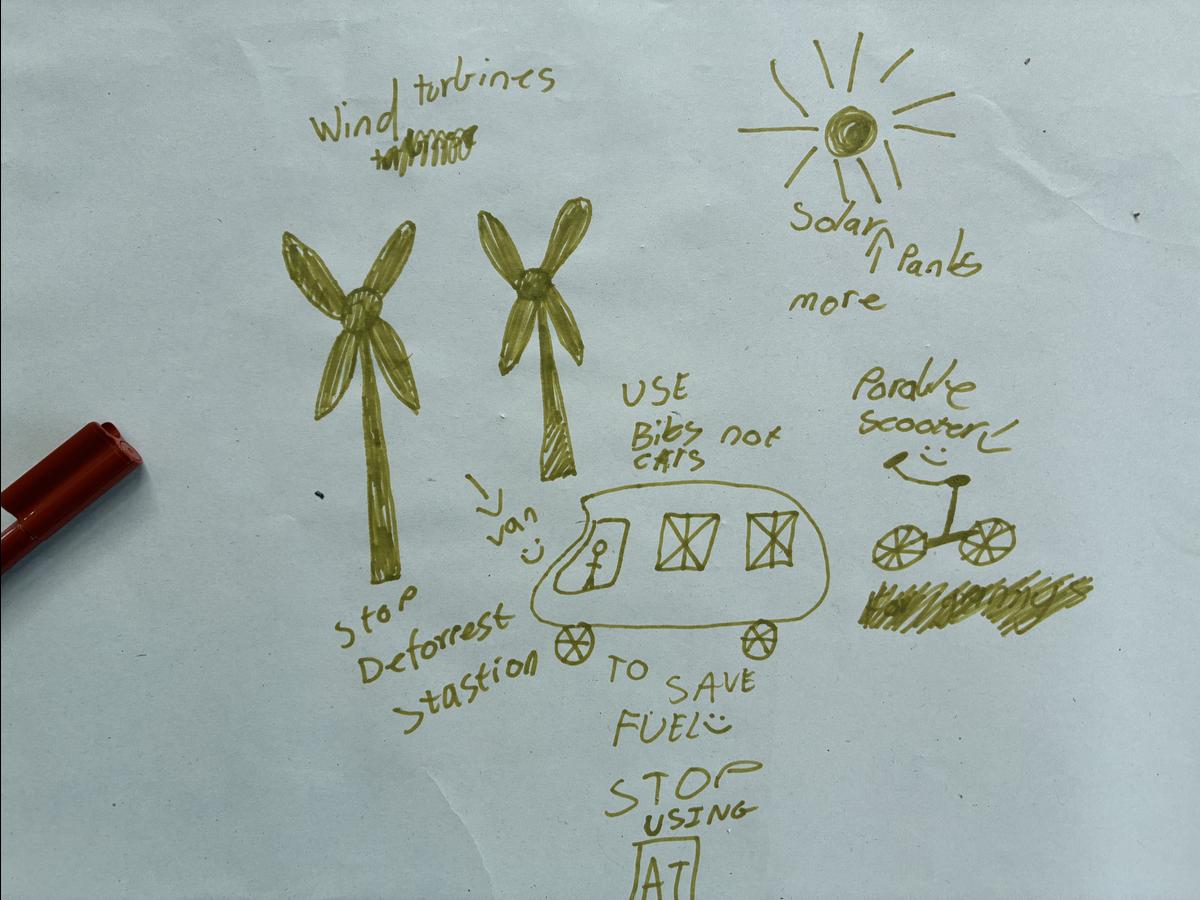 Wind turbines
Solar
Panls
more
USE
not
cars
scooter
van
Stop
Deforrest
stastion
TO
SAVE
FUEL
STOP
USING
AT